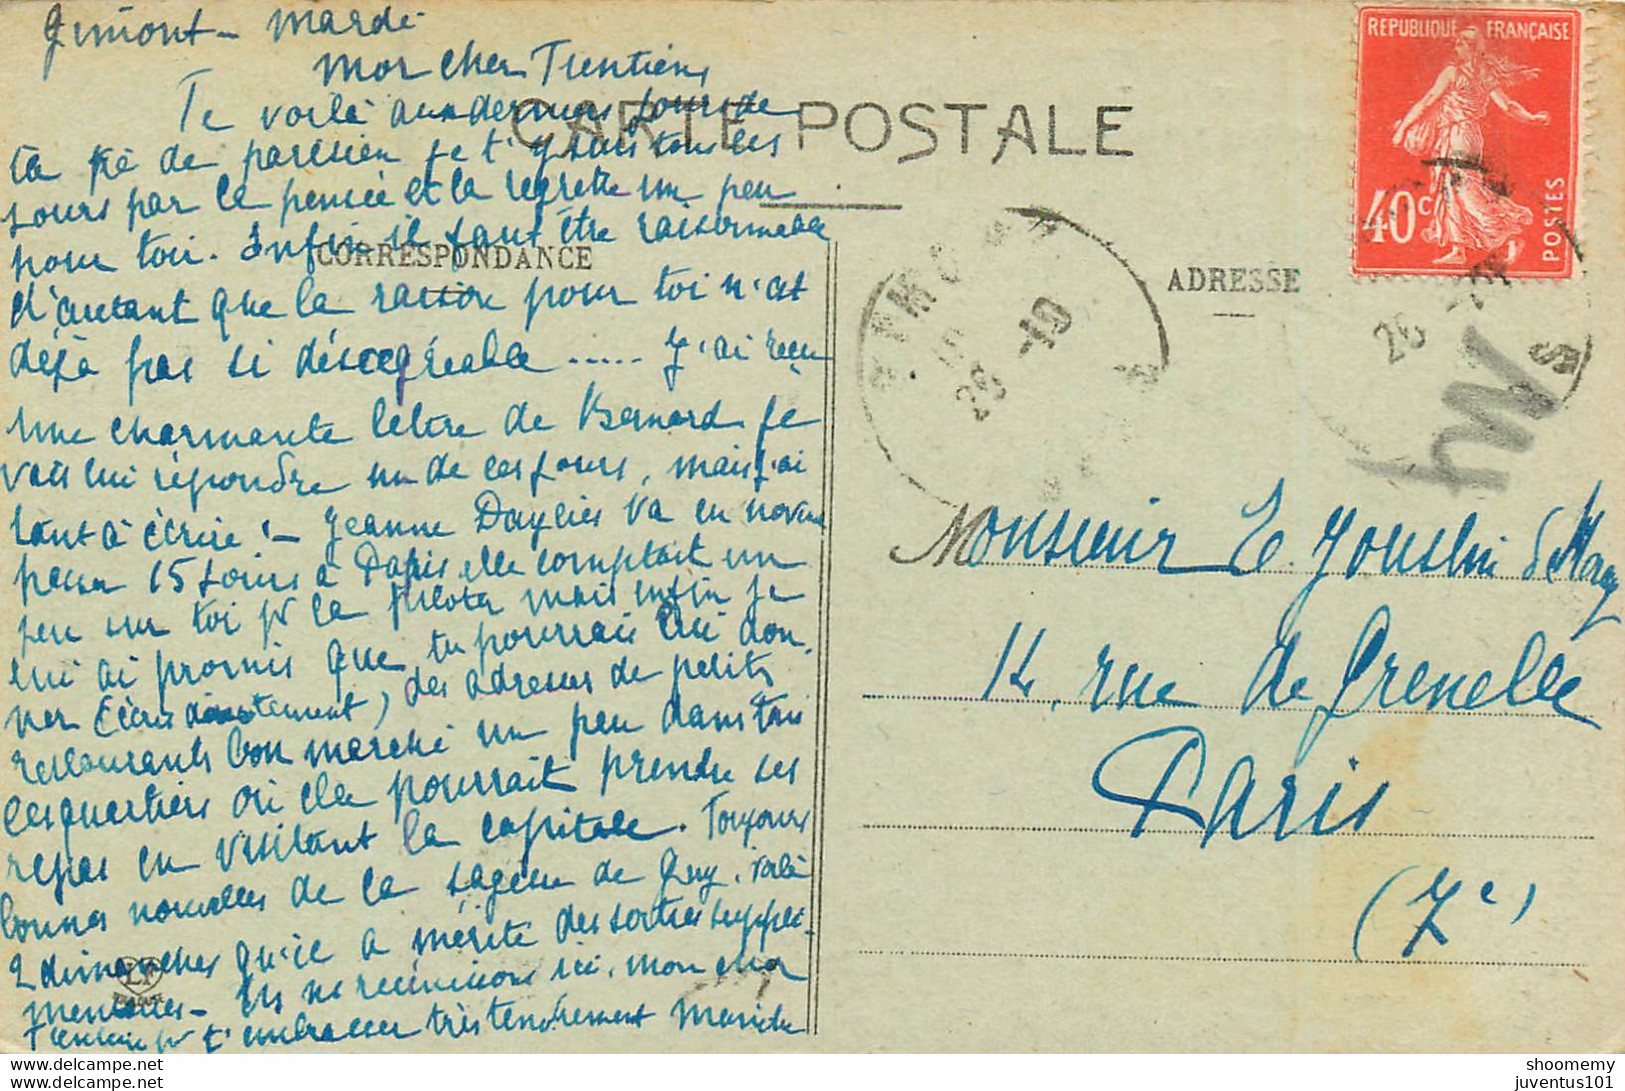 Gimont – Mardi
Mon cher Tientiens
Te voilà aux derniers jours de
ta vie de parisien je t'y suis tous les
jours par la pensée et la regrette un peu
pour toi. Enfin il faut être raisonnable
d'autant que la raison pour toi n'est
déjà pas si désagréable ..... J'ai reçu
une charmante lettre de Bernard je
vais lui répondre un de ces jours, mais j'ai
tant à écrire ! – Jeanne Daylies va en novem
passer 15 jours à Paris, elle comptait un
peu sur toi pr la piloter mais enfin je
lui ai promis que tu pourrais lui don.
ner (écris directement) des adresses de petits
restaurants bon marché un peu dans tous
les quartiers où elle pourrait prendre ses
repas en visitant la capitale. Toujours
bonnes nouvelles de la sagesse de Guy. voilà
2 dimanches qu'il a mérité des sorties supplé.
mentaires – ns ns réunissons ici. mon cher
Tientiens pr t'embrasser très tendrement
CARTE POSTALE
CORRESPONDANCE
ADRESSE
REPUBLIQUE FRANÇAISE
40c
POSTES
GIMONT
25 -10
26
Monsieur E. de
14, rue de Grenelle
Paris
(7e)
LF
TOULOUSE
shoomemy
juventus101